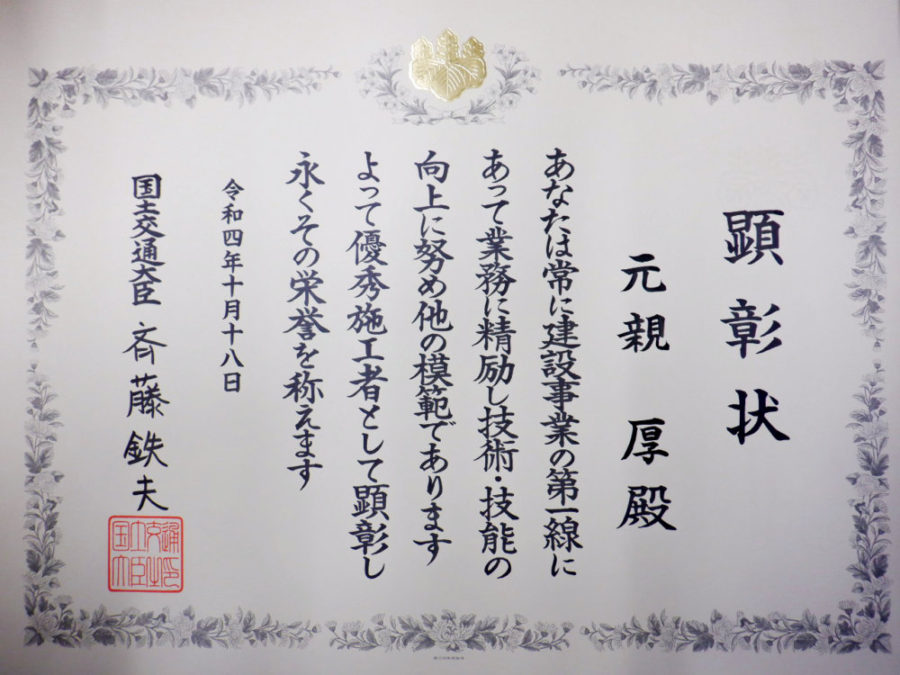 顕彰状
元親 厚殿
あなたは常に建設事業の第一線に
あって業務に精励し技術・技能の
向上に努め他の模範であります
よって優秀施工者として顕彰し
永くその栄誉を称えます
令和四年十月十八日
国土交通大臣 斉藤鉄夫
国土交通
大臣之印